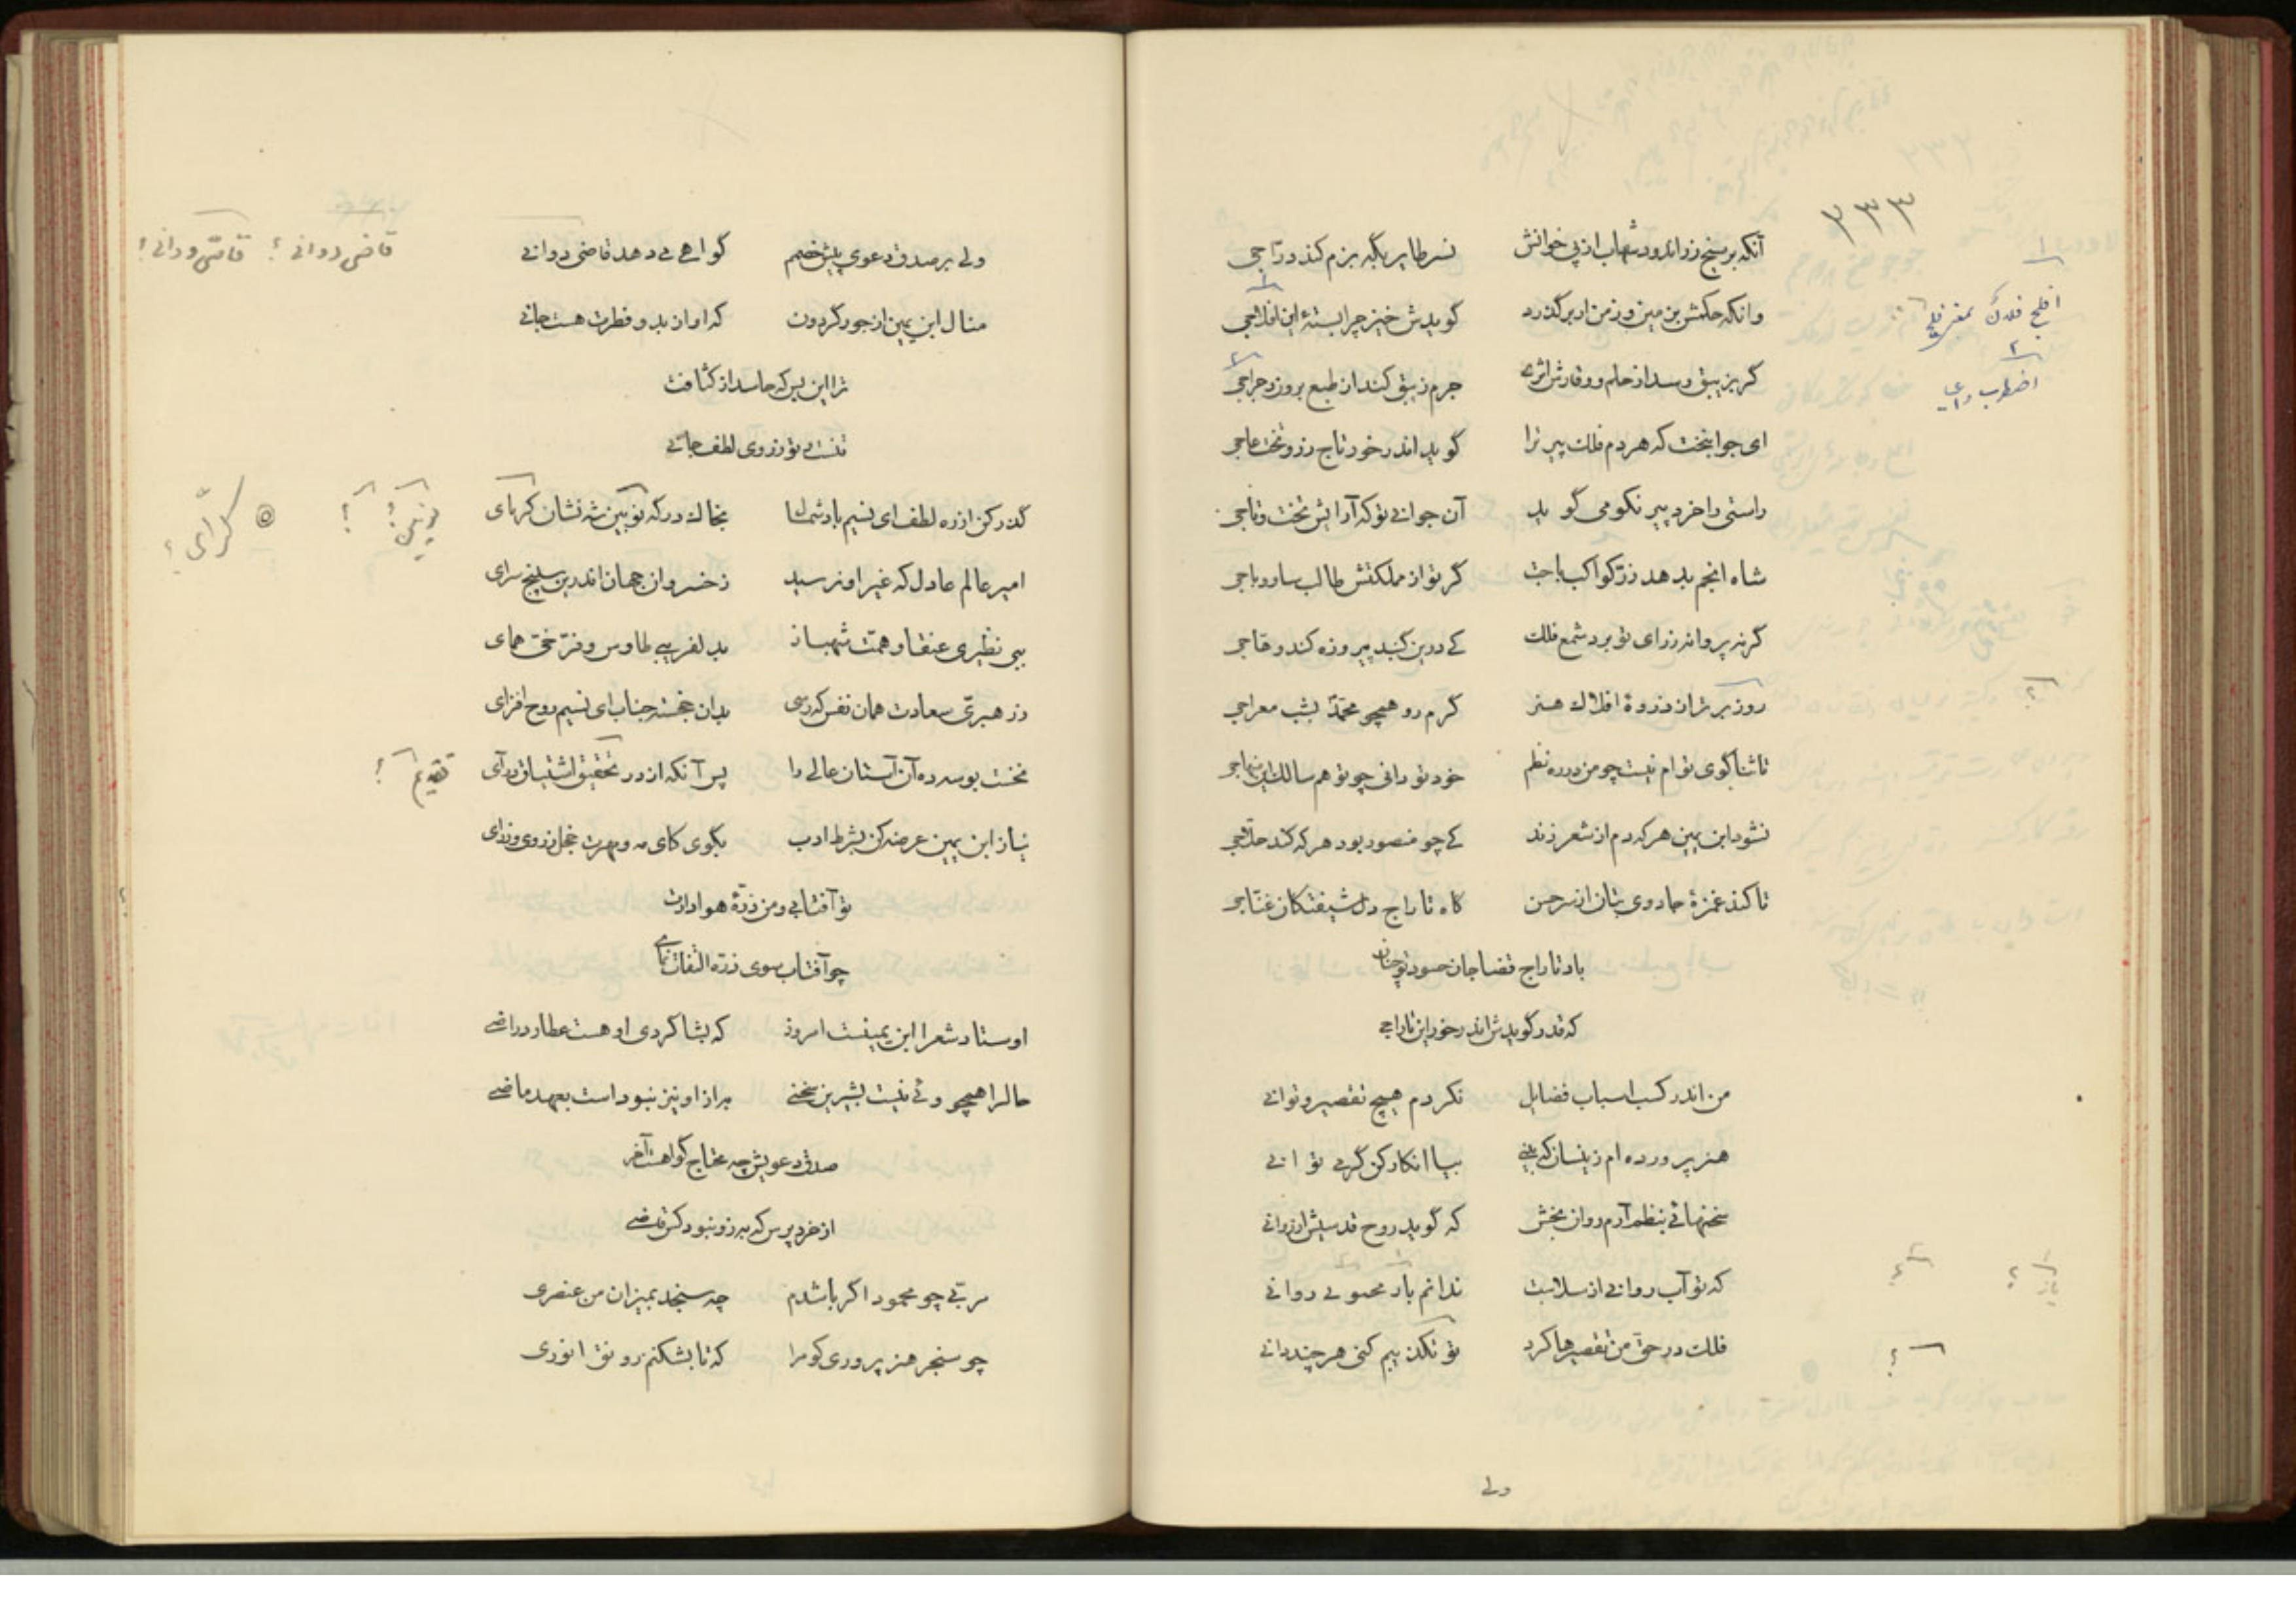 ۳۳۳
آنکه بر سیخ زر اندود شهاب از پی خوانش    نسر طایر بگه بزم کند دراجی
وانکه حکمش بزمین و زمن ار برگذرد    گویدش خیز چرا بستهٔ این افلاجی
گر بزیبق رسد از حلم و وقارش اثری    جرم زیبق کند از طبع برون رجراجی
ای جوانبخت که هر دم فلک پیر ترا    گوید اندر خور تاج زر و تخت عاجی
راستی را خرد پیر نکو می گوید    آن جوانی تو که آرایش تخت و تاجی
شاه انجم بدهد زر کواکب باجت    گر تو از مملکتش طالب ساو و باجی
گر نه پروانه ز رای تو برد شمع فلک    کی درین گنبد پیروزه کند وهاجی
روز بر ذروهٔ افلاک هنر    گرم رو همچو محمد بشب معراجی
تا ثناگوی توام نیست چو من در ره نظم    خود تو دانی چو تو هم سالک این منهاجی
نشود ابن یمین هر که دم از شعر زند    کی چو منصور بود هر که کند حلاجی
تا کند غمزهٔ جادوی بتان از سر حسن    گاه تاراج دل شیفتگان غنّاجی
باد تاراج قضا جان حسود تو چنان
که قدر گویدش اندر خور این تاراجی
من اندر کسب اسباب فضایل    نکردم هیچ تقصیر و توانی
هنر پرورده ام زینسان که بینی    بیا انکار کن گر می توانی
سخنهائی بنظم آرم روان بخش    که گوید روح قدسیش ار روانی
که تو آب روانی از سلاست    ندانم یا روانی
فلک در حق من تقصیرها کرد    تو کنی هر چند دانی
ولی
افلج فلاک بمعنی فلج
۲
اضطراب و
ولی بر صدق دعوی پیش خصمم    گواهی می دهد قاضی دوانی
منال ابن یمین از جور گردون    که او از بدو فطرت هست جانی
ترا این بس که حاسد از کثافت
تنست و تو ز روی لطف جانی
گذر کن از ره لطف ای نسیم باد شمال    بخاک درگه نشان
امیر عالم عادل که غیر او نرسید    ز خسروان جهان اندرین سپنج سرای
بی نظیری عنقا و همت شهباز    بدلفریبی طاوس و فرخی همای
ز رهبری سعادت همان نفس که رسی    بدان خجسته جناب ای نسیم روح افزای
نخست بوسه ده آن آستان عالی را    پس آنکه از در تحقیق اشتیاق درآی
نیاز ابن یمین عرضه کن بشرط ادب    بگوی کای مه و مهرت خجل ز روی و ز رای
تو آفتابی و من ذرّهٔ هوادارت
چو آفتاب سوی ذرّه التفات نمای
اوستاد شعرا ابن یمینست امروز    که بشاگردی او هست عطارد راضی
حال را همچو وئی نیست بشیرین سخنی    به از او نیز نبوداست بعهد ماضی
صدق دعویش چه محتاج گواهست آخر
از خرد پرس که به زو نبود کس قاضی
مربّی چو محمود اگر باشدم    چه سنجد بمیزان من عنصری
چو سنجر هنر پروری کو مرا    که تا بشکنم رونق انوری
قاضی دوانی ؟    قاضی و دانی ؟
کرّای ؟
تقدیم ؟